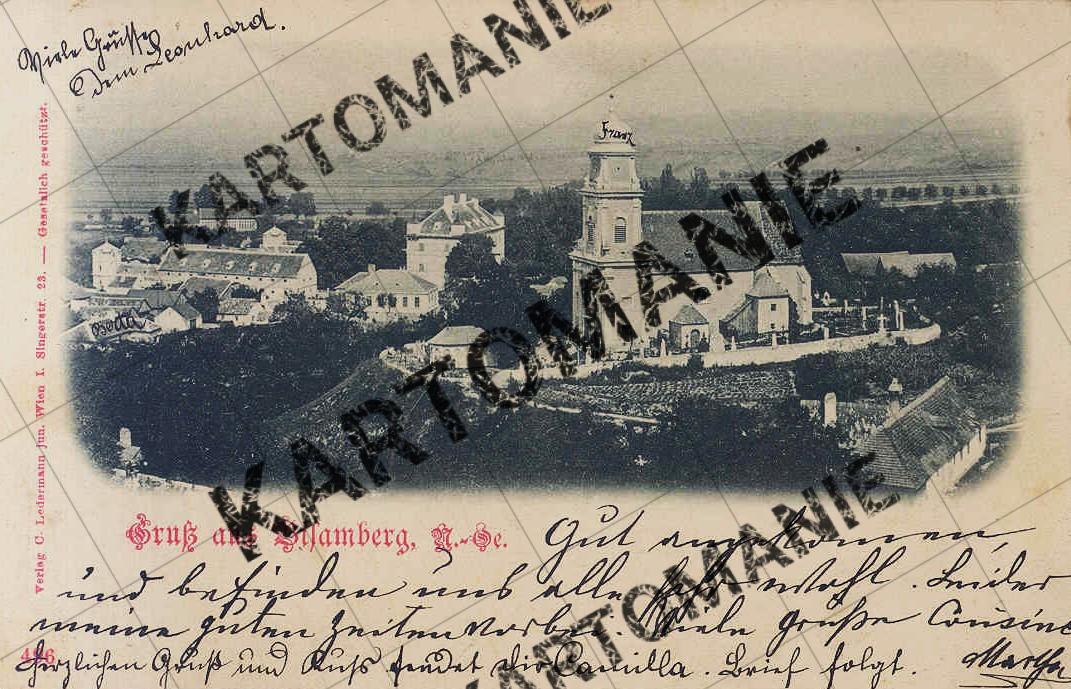 Viele Grüsse
dem Leonhard.
KARTOMANIE
KARTOMANIE
KARTOMANIE
KARTOMANIE
Franz
Verlag C. Ledermann jun. Wien I. Singerstr. 23. — Gesetzlich geschützt.
Gruß aus Bisamberg, N.-Oe.
Gut angekommen,
und befinden uns alle sehr wohl. Leider
meine guten Zeiten vorbei. Viele Grüße Cousine
Herzlichen Gruß und Kuß sendet dir Camilla. Brief folgt. Martha